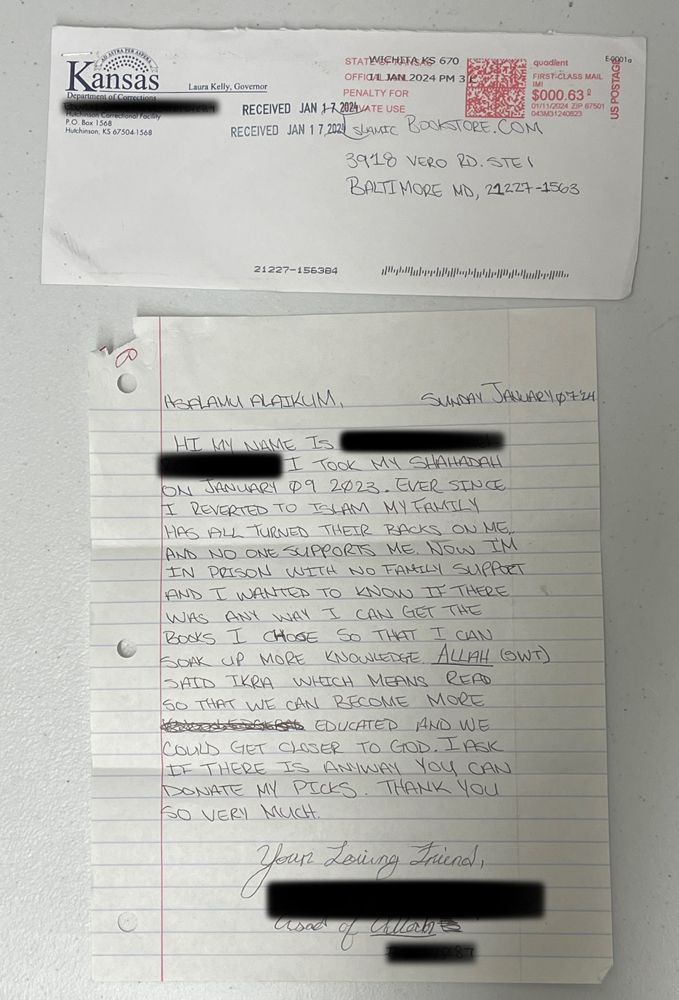 AD ASTRA PER ASPERA
Kansas
Department of Corrections
Laura Kelly, Governor
Hutchinson Correctional Facility
P.O. Box 1568
Hutchinson, KS 67504-1568
RECEIVED JAN 17 2024
RECEIVED JAN 17 2024
STATE OF KANSAS
WICHITA KS 670
OFFICIAL MAIL
11 JAN 2024 PM 3 L
PENALTY FOR
PRIVATE USE
quadient
FIRST-CLASS MAIL
IMI
$000.63⁰
01/11/2024 ZIP 67501
043M31240823
US POSTAGE
ISLAMIC BOOKSTORE.COM
3918 VERO RD. STE I
BALTIMORE MD, 21227-1563
21227-156384
ASALAMU ALAIKUM, SUNDAY JANUARY 07 '24
HI MY NAME IS
I TOOK MY SHAHADAH
ON JANUARY 09 2023. EVER SINCE
I REVERTED TO ISLAM MY FAMILY
HAS ALL TURNED THEIR BACKS ON ME.
AND NO ONE SUPPORTS ME. NOW I'M
IN PRISON WITH NO FAMILY SUPPORT
AND I WANTED TO KNOW IF THERE
WAS ANY WAY I CAN GET THE
BOOKS I CHOSE SO THAT I CAN
SOAK UP MORE KNOWLEDGE. ALLAH (SWT)
SAID IKRA WHICH MEANS READ
SO THAT WE CAN BECOME MORE
EDUCATED AND WE
COULD GET CLOSER TO GOD. I ASK
IF THERE IS ANYWAY YOU CAN
DONATE MY PICKS. THANK YOU
SO VERY MUCH.
Your Loving Friend,
of Allah
87